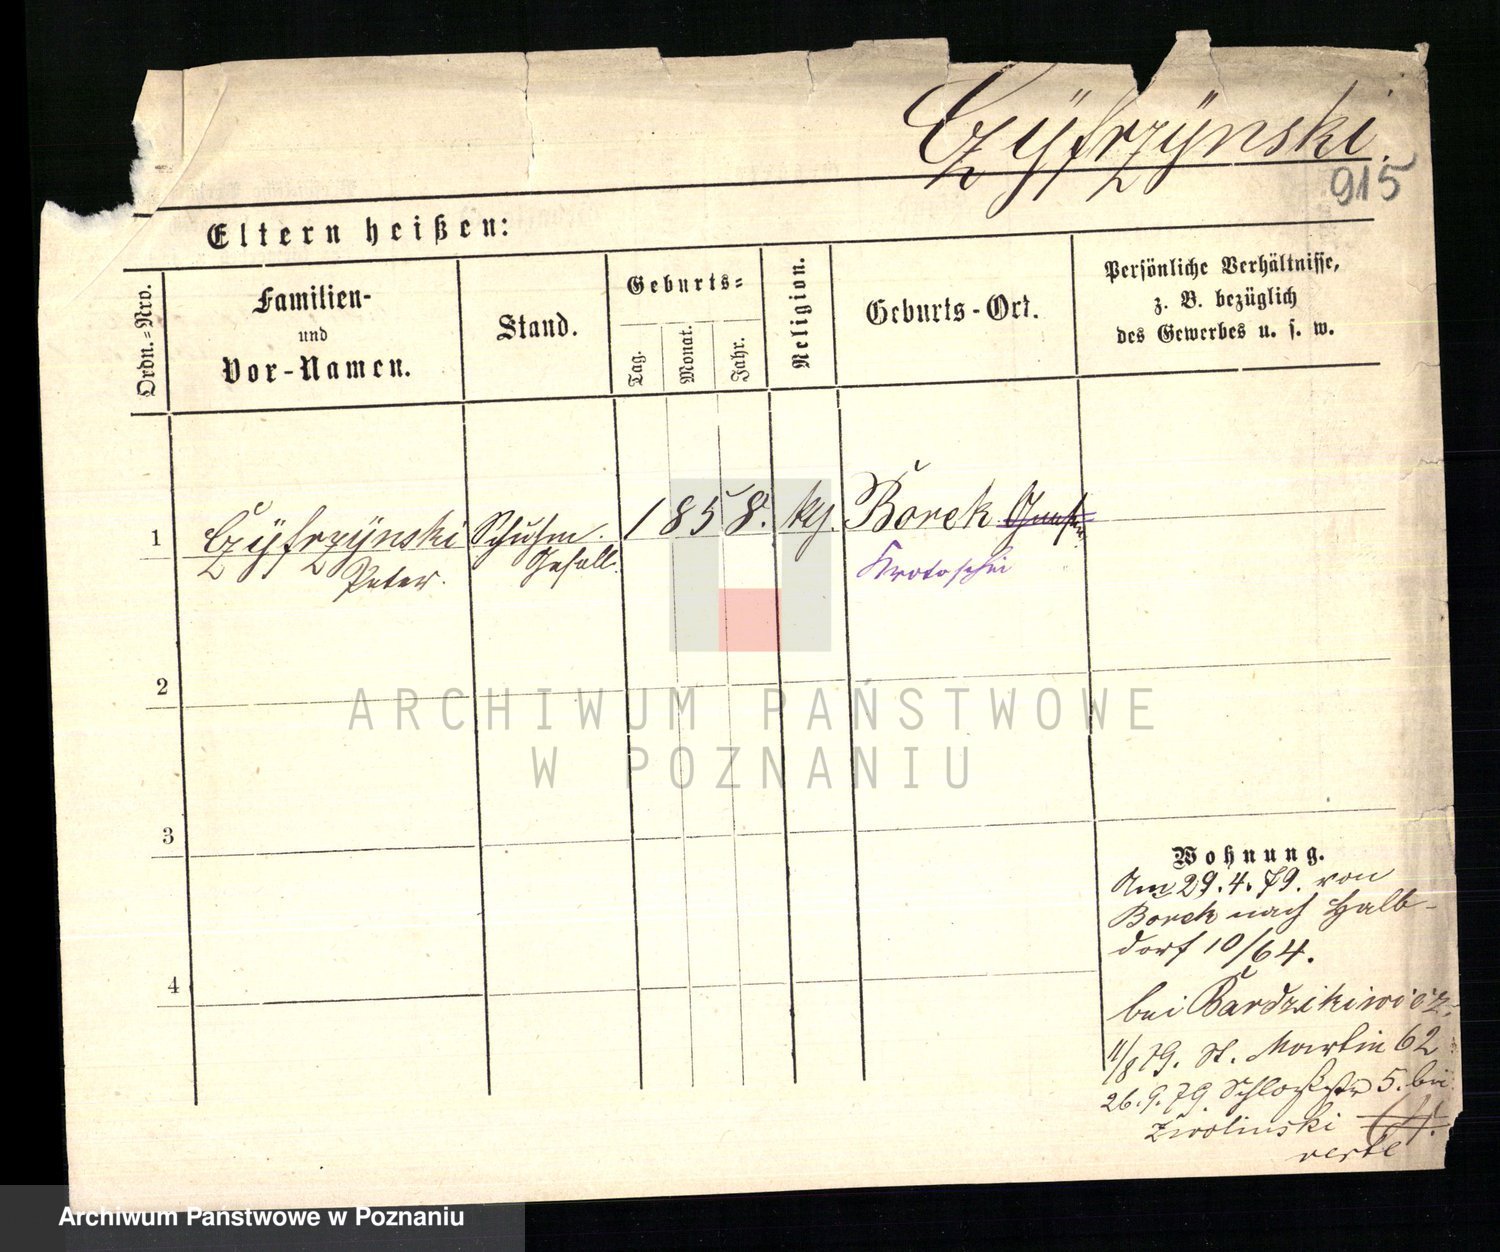 Czÿfrzÿnski.
915
Eltern heißen:
Ordn.-Nro.
Familien-
und
Vor-Namen.
Stand.
Geburts-
Tag.
Monat.
Jahr.
Religion.
Geburts-Ort.
Persönliche Verhältnisse,
z. B. bezüglich
des Gewerbes u. s. w.
1
Czÿfrzÿnski
Peter.
Schuhm.
Gesell.
1858.
kg.
Borek
Krotoschin
2
3
4
Wohnung.
Am 29.4.79. von
Borek nach Halb-
dorf 10/64.
bei Bardzikiwicz.
11/8 79. St. Martin 62
26.9.79. Schloßstr 5. bei
Zwolinski
verte
ARCHIWUM PAŃSTWOWE
W POZNANIU
Archiwum Państwowe w Poznaniu